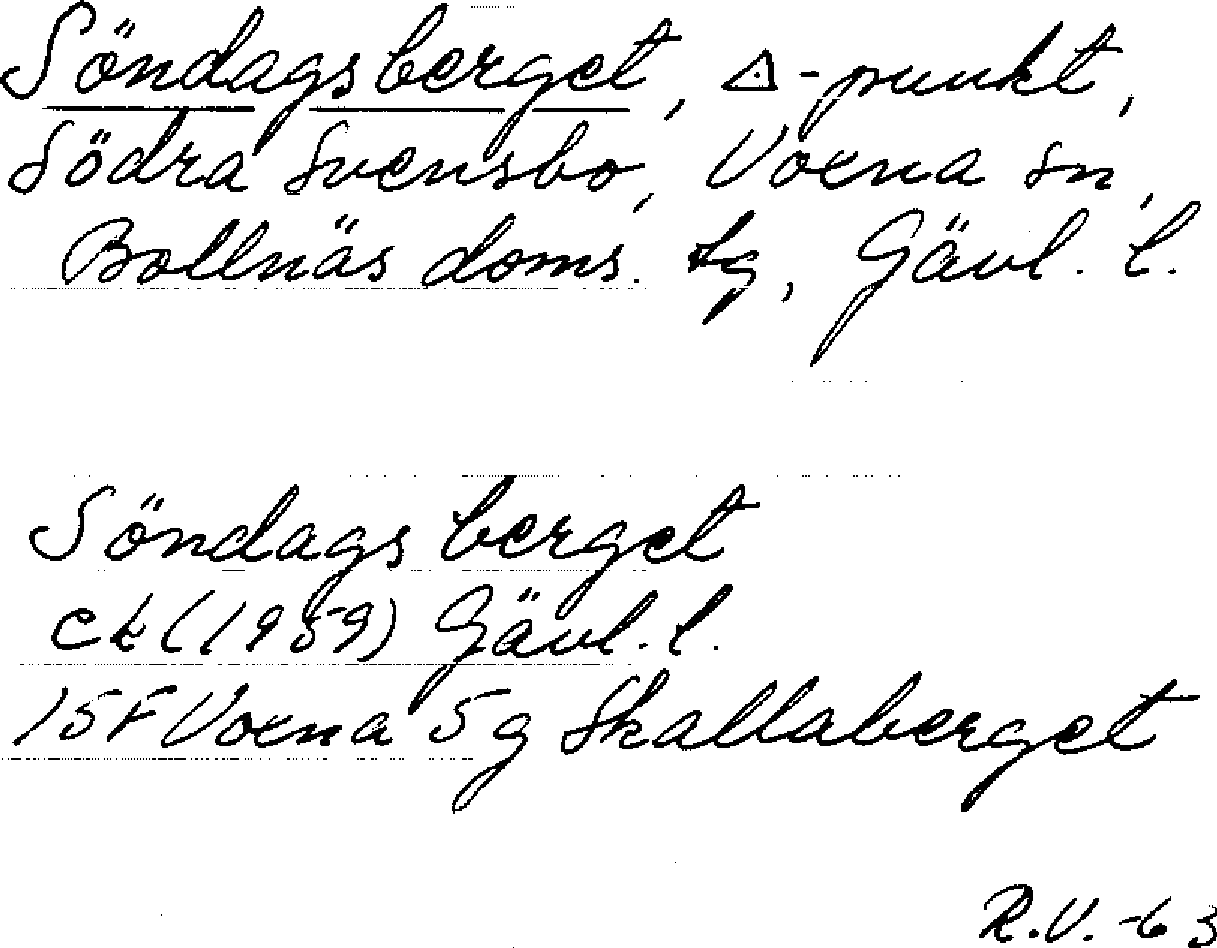 Söndagsberget, △-punkt,
Södra Svensbo, Voxna sn,
Bollnäs doms. tg, Gävl. l.
Söndagsberget
ek (1959) Gävl. l.
15F Voxna 5g Skallaberget
R.V. -63